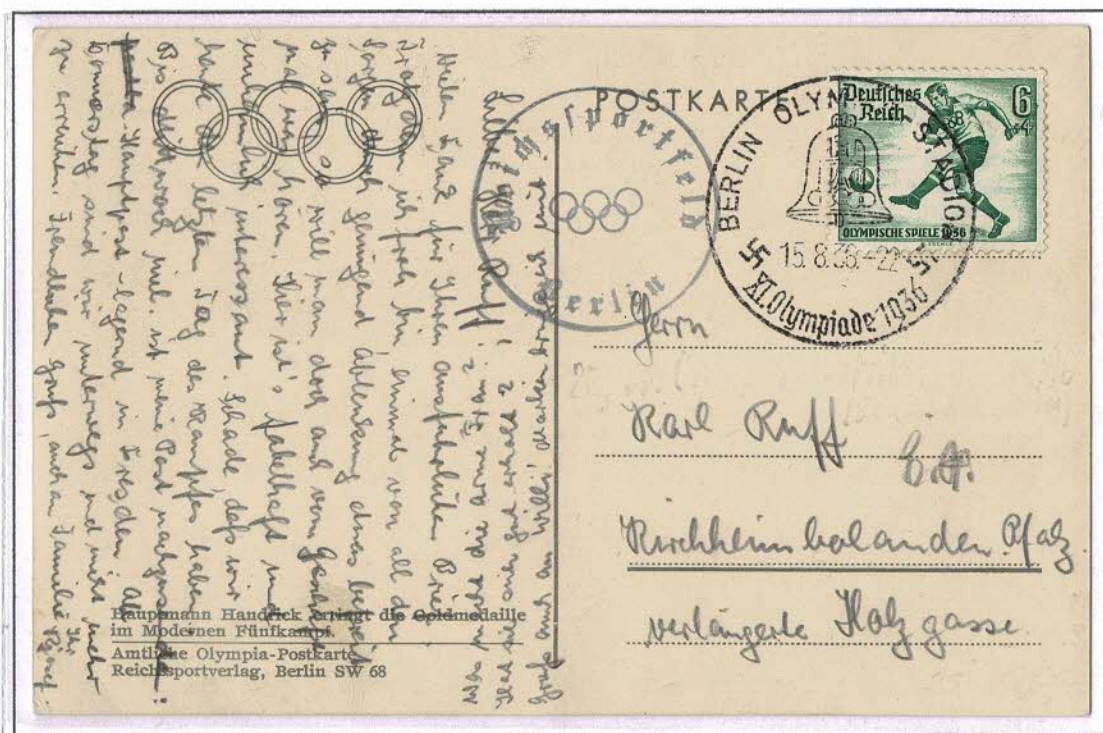 POSTKARTE
Deutsches
Reich
6
+4
OLYMPISCHE SPIELE 1936
BERLIN OLYMPIA-STADION
15.8.36.-22
XI. Olympiade 1936
Reichssportfeld
Berlin
Herrn
Karl Ruff
Kirchheimbolanden. Pfalz
verlängerte Holzgasse.
Lieber Herr Ruff!
Vielen Dank für Ihren ausführlichen Brief.
Trotzdem ich froh bin einmal von all den
Sorgen durch genügend Ablenkung etwas befreit
zu sein, so will man doch auch vom Geschäft
mal was hören. Hier ist's fabelhaft und
unheimlich interessant. Schade, daß wir
heute den letzten Tag des Kampfes haben.
Bis Mittwoch inkl. ist meine Post nachzusenden:
Hauptpost-lagernd in Dresden. Ab
Donnerstag sind wir unterwegs und nicht mehr
zu erreichen. Freundlichen Gruß, auch an Familie
Ihr
Was macht die arme Frau?
Hat sie einen gut erhalt?
Gruß auch an Willi! Marken
Hauptmann Handrick erringt die Goldmedaille
im Modernen Fünfkampf.
Amtliche Olympia-Postkarte
Reichssportverlag, Berlin SW 68